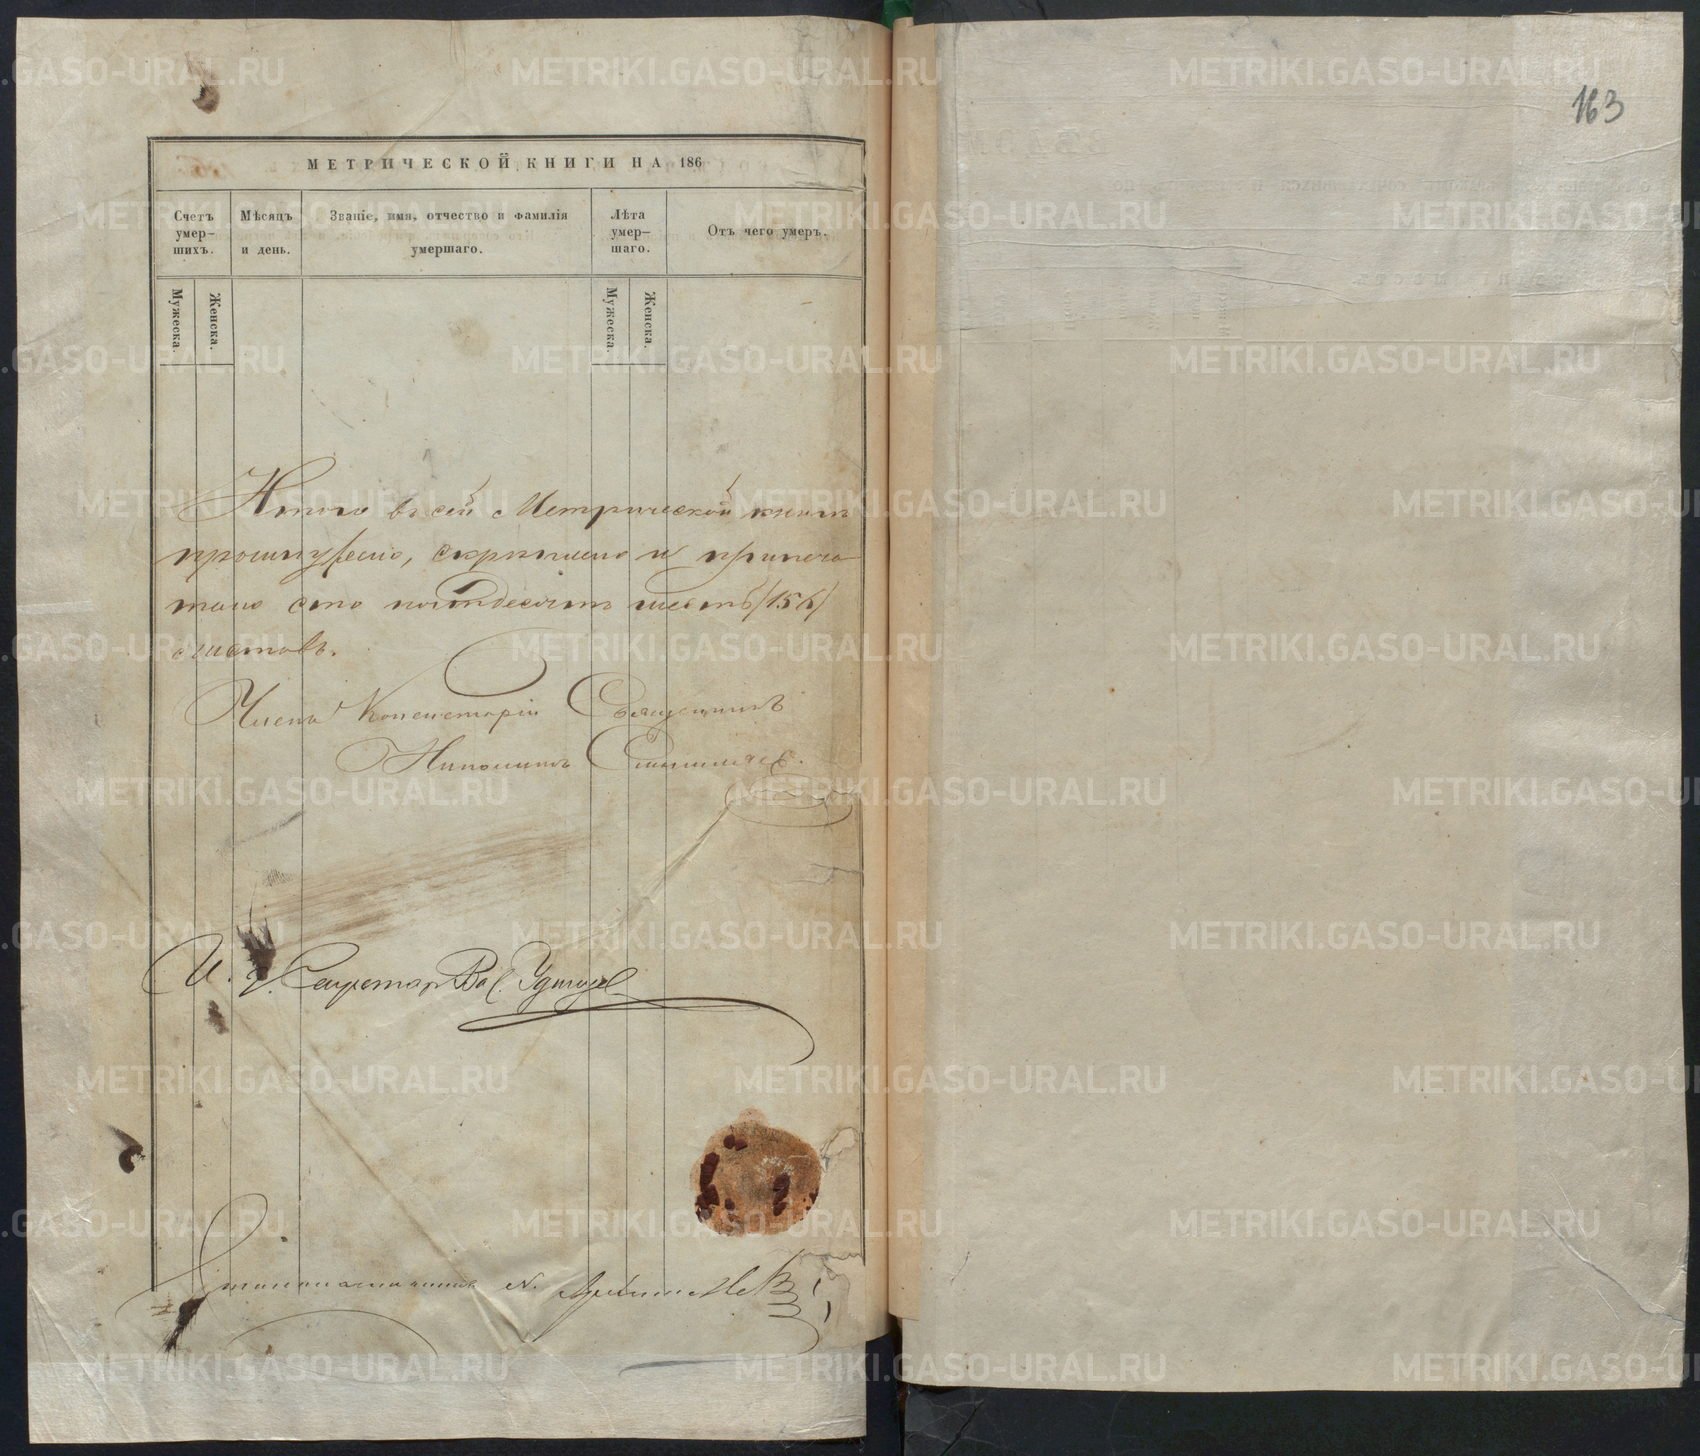 163
МЕТРИЧЕСКОЙ КНИГИ НА 186
Счетъ умер-шихъ.
Мѣсяцъ и день.
Званіе, имя, отчество и фамилія умершаго.
Лѣта умер-шаго.
Отъ чего умеръ.
Мужеска.
Женска.
Мужеска.
Женска.
Итого въ сей Метрической книгѣ
прошнуровано, скрѣплено и припеча
тано сто пятьдесятъ шесть /156/
листовъ.
Членъ Консисторіи Священникъ
И. д. Секретаря Вас.
Столоначальникъ
METRIKI.GASO-URAL.RU